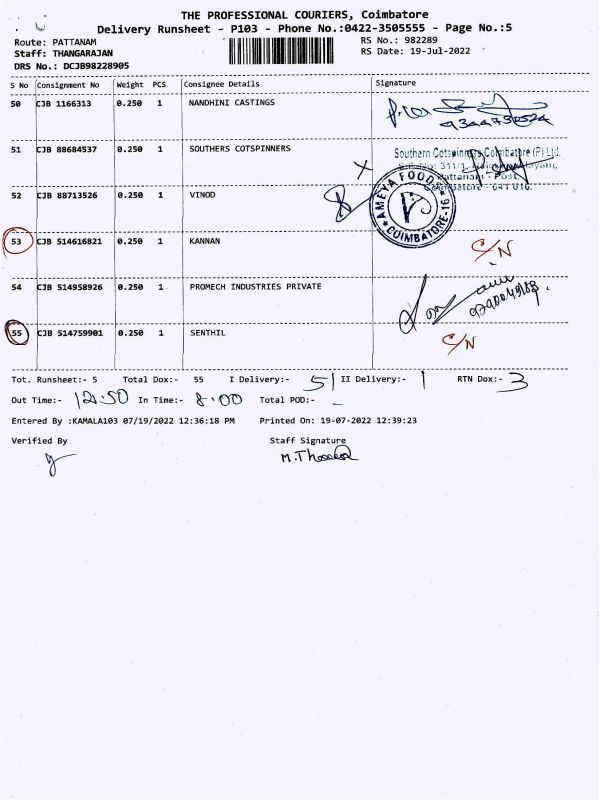 THE PROFESSIONAL COURIERS, Coimbatore
Delivery Runsheet - P103 - Phone No.:0422-3505555 - Page No.:5
Route: PATTANAM RS No.: 982289
Staff: THANGARAJAN RS Date: 19-Jul-2022
DRS No.: DCJB98228905
S No Consignment No Weight PCS Consignee Details Signature
50 CJB 1166313 0.250 1 NANDHINI CASTINGS
51 CJB 88684537 0.250 1 SOUTHERS COTSPINNERS
Southern Cotspinners Coimbatore (P) Ltd.
Pattanam - Post,
Coimbatore - 641 016.
52 CJB 88713526 0.250 1 VINOD
AMEYA FOOD
COIMBATORE-16
53 CJB 514616821 0.250 1 KANNAN C/N
54 CJB 514958926 0.250 1 PROMECH INDUSTRIES PRIVATE
55 CJB 514759901 0.250 1 SENTHIL C/N
Tot. Runsheet:- 5 Total Dox:- 55 I Delivery:- 51 II Delivery:- 1 RTN Dox:- 3
Out Time:- 12:50 In Time:- 8:00 Total POD:- -
Entered By :KAMALA103 07/19/2022 12:36:18 PM Printed On: 19-07-2022 12:39:23
Verified By Staff Signature